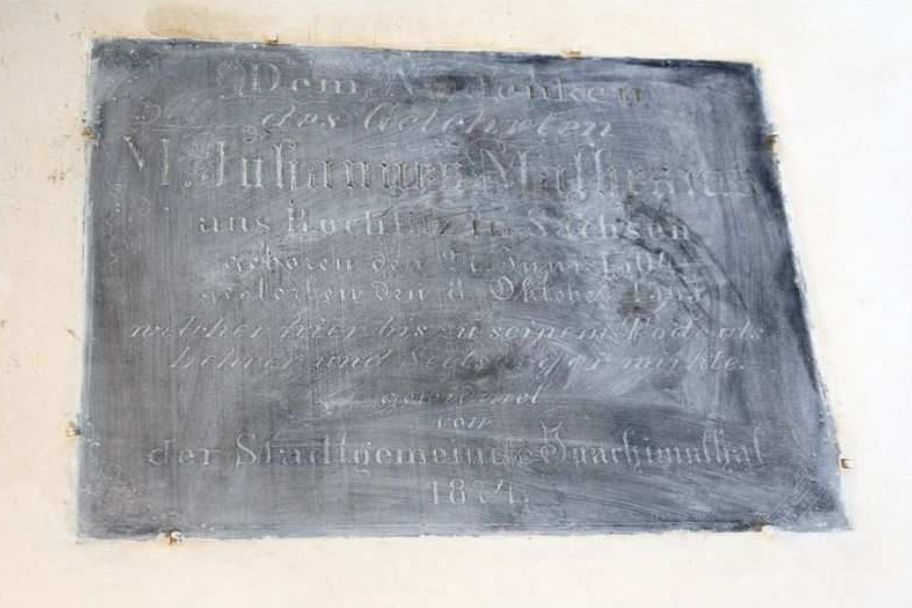 Dem Andenken
des Gelehrten
M. Johannes Mathesius
aus Rochlitz in Sachsen
geboren den 24. Juni 1504
gestorben den 8. Oktober 1565
welcher hier bis zu seinem Tode als
Lehrer und Seelsorger wirkte.
gewidmet
von
der Stadtgemeinde Joachimsthal